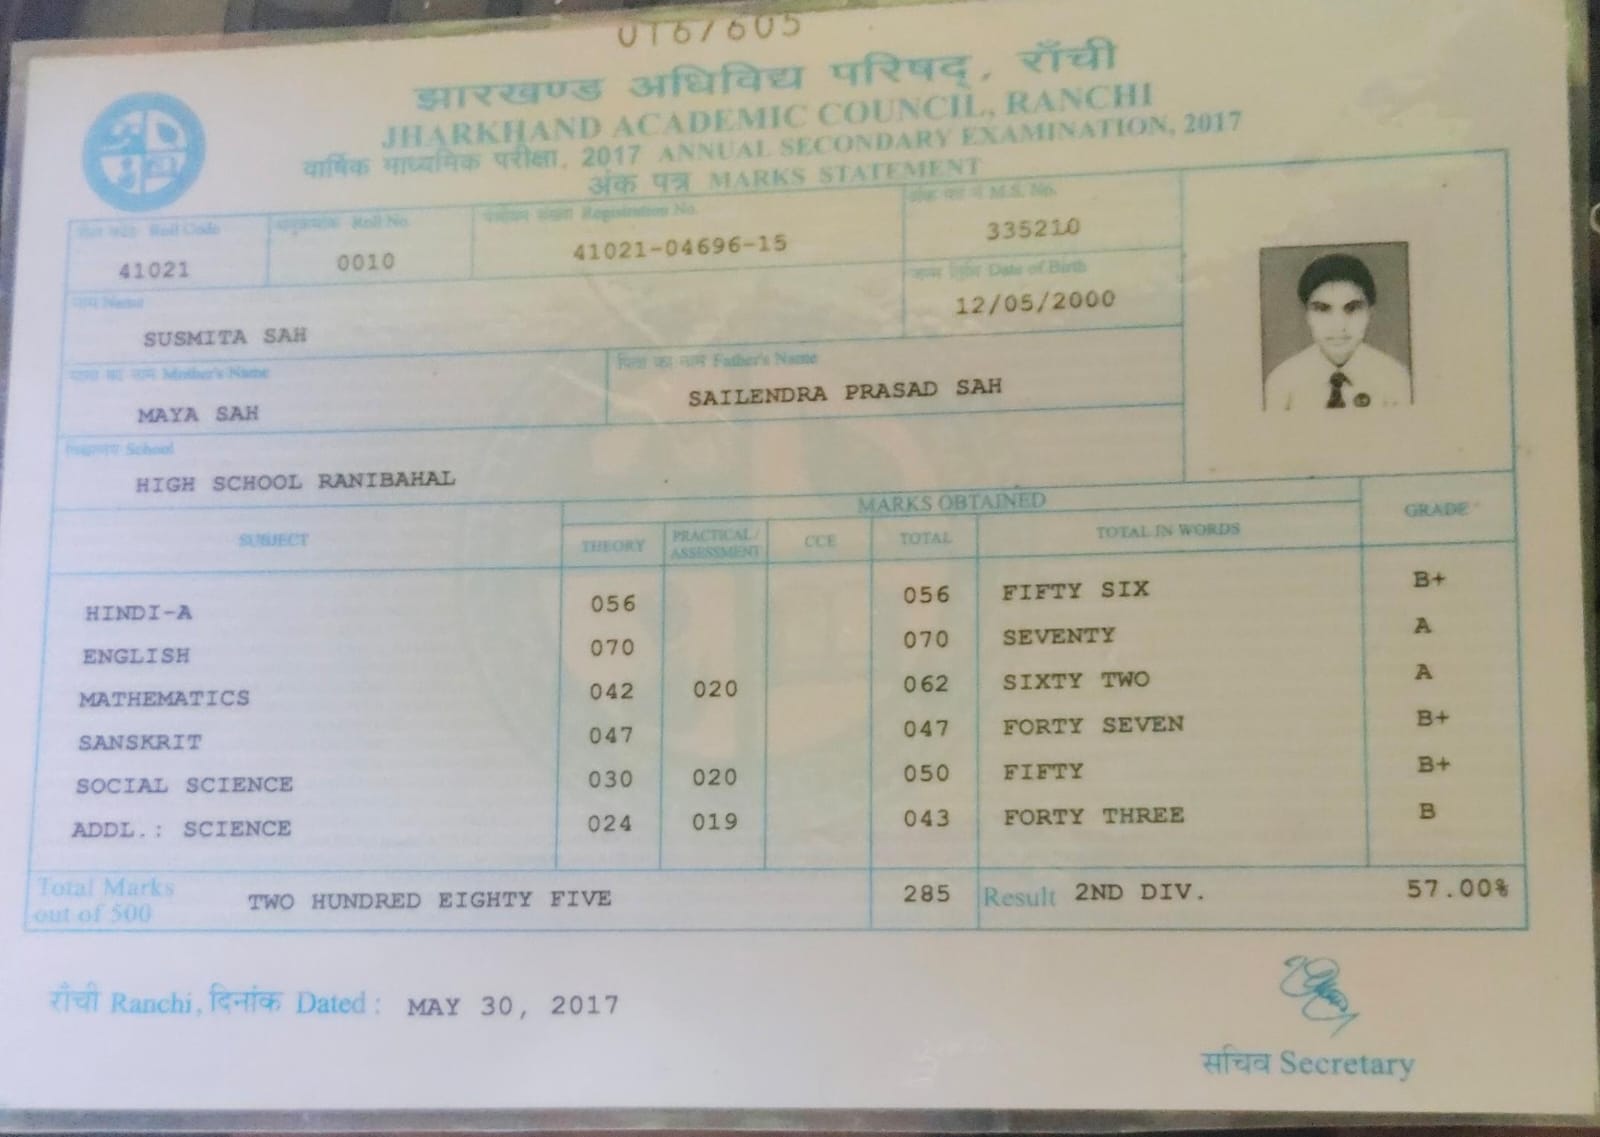 0167605
झारखण्ड अधिविद्य परिषद्, राँची
JHARKHAND ACADEMIC COUNCIL, RANCHI
वार्षिक माध्यमिक परीक्षा, 2017 ANNUAL SECONDARY EXAMINATION, 2017
अंक पत्र MARKS STATEMENT
Roll Code Roll No. Registration No. M.S. No.
41021 0010 41021-04696-15 335210
Date of Birth
12/05/2000
नाम Name
SUSMITA SAH
माता का नाम Mother's Name पिता का नाम Father's Name
MAYA SAH SAILENDRA PRASAD SAH
विद्यालय School
HIGH SCHOOL RANIBAHAL
MARKS OBTAINED
SUBJECT THEORY PRACTICAL/ ASSESSMENT CCE TOTAL TOTAL IN WORDS GRADE
HINDI-A 056 056 FIFTY SIX B+
ENGLISH 070 070 SEVENTY A
MATHEMATICS 042 020 062 SIXTY TWO A
SANSKRIT 047 047 FORTY SEVEN B+
SOCIAL SCIENCE 030 020 050 FIFTY B+
ADDL.: SCIENCE 024 019 043 FORTY THREE B
Total Marks out of 500 TWO HUNDRED EIGHTY FIVE 285 Result 2ND DIV. 57.00%
राँची Ranchi, दिनांक Dated : MAY 30, 2017
सचिव Secretary